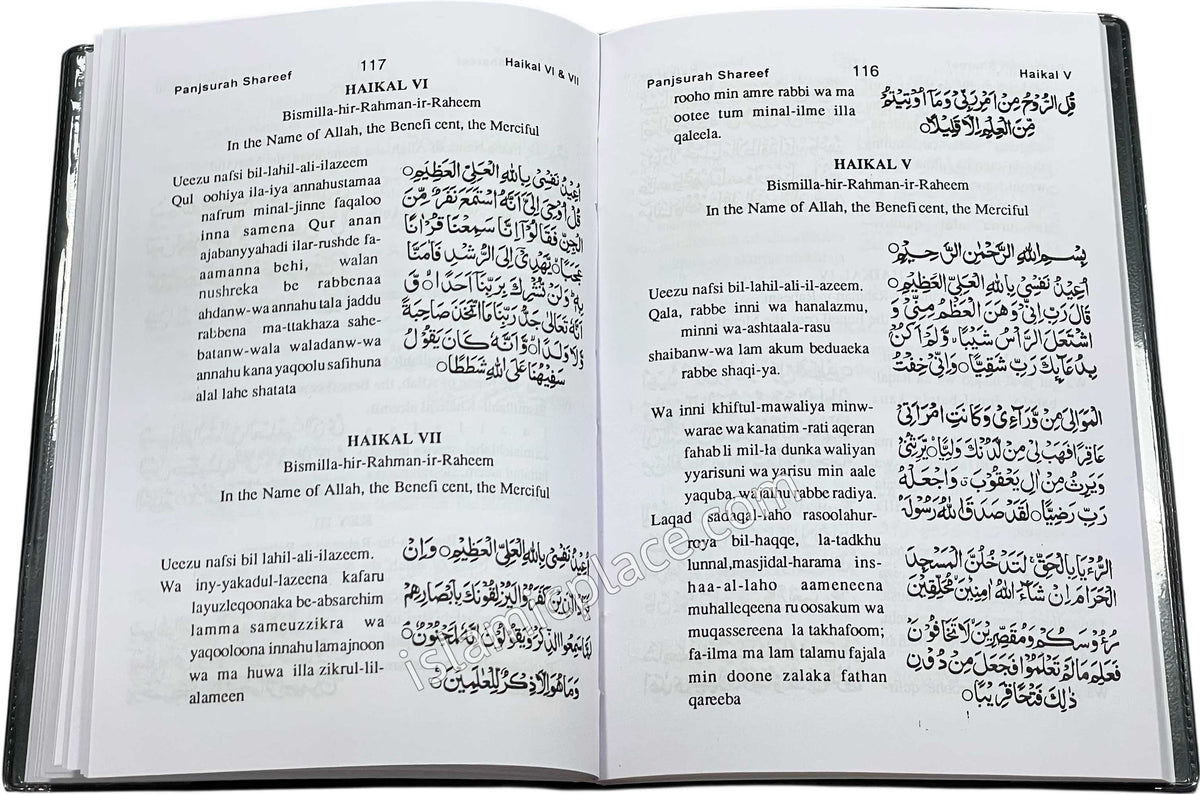 Panjsurah Shareef 116 Haikal V
rooho min amre rabbi wa ma
ootee tum minal-ilme illa
qaleela.
قُلِ الرُّوْحُ مِنْ اَمْرِ رَبِّيْ وَمَا اُوْتِيْتُمْ
مِّنَ الْعِلْمِ اِلَّا قَلِيْلًا
HAIKAL V
Bismilla-hir-Rahman-ir-Raheem
In the Name of Allah, the Benefi cent, the Merciful
بِسْمِ اللهِ الرَّحْمٰنِ الرَّحِيْمِ
Ueezu nafsi bil-lahil-ali-il-azeem.
Qala, rabbe inni wa hanalazmu,
minni wa-ashtaala-rasu
shaibanw-wa lam akum beduaeka
rabbe shaqi-ya.
اُعِيْذُ نَفْسِيْ بِاللهِ الْعَلِيِّ الْعَظِيْمِ
قَالَ رَبِّ اِنِّيْ وَهَنَ الْعَظْمُ مِنِّيْ وَ
اشْتَعَلَ الرَّأْسُ شَيْبًا وَّلَمْ اَكُنْ
بِدُعَائِكَ رَبِّ شَقِيًّا وَاِنِّيْ خِفْتُ
Wa inni khiftul-mawaliya minw-
warae wa kanatim -rati aqeran
fahab li mil-la dunka waliyan
yyarisuni wa yarisu min aale
yaquba, wa jalhu rabbe radiya.
Laqad sadaqal-laho rasoolahur-
roya bil-haqqe, la-tadkhu
lunnal,masjidal-harama ins-
haa-al-laho aameneena
muhalleqeena ru oosakum wa
muqassereena la takhafoom;
fa-ilma ma lam talamu fajala
min doone zalaka fathan
qareeba
الْمَوَالِيَ مِنْ وَّرَآءِيْ وَكَانَتِ امْرَاَتِيْ
عَاقِرًا فَهَبْ لِيْ مِنْ لَّدُنْكَ وَلِيًّا يَّرِثُنِيْ
وَيَرِثُ مِنْ اٰلِ يَعْقُوْبَ وَاجْعَلْهُ
رَبِّ رَضِيًّا لَقَدْ صَدَقَ اللهُ رَسُوْلَهُ
الرُّءْيَا بِالْحَقِّ لَتَدْخُلُنَّ الْمَسْجِدَ
الْحَرَامَ اِنْ شَآءَ اللهُ اٰمِنِيْنَ مُحَلِّقِيْنَ
رُءُوْسَكُمْ وَمُقَصِّرِيْنَ لَا تَخَافُوْنَ
فَعَلِمَ مَا لَمْ تَعْلَمُوْا فَجَعَلَ مِنْ دُوْنِ
ذٰلِكَ فَتْحًا قَرِيْبًا
Panjsurah Shareef 117 Haikal VI & VII
HAIKAL VI
Bismilla-hir-Rahman-ir-Raheem
In the Name of Allah, the Benefi cent, the Merciful
Ueezu nafsi bil-lahil-ali-ilazeem
Qul oohiya ila-iya annahustamaa
nafrum minal-jinne faqaloo
inna samena Qur anan
ajabany yahdi ilar-rushde fa-
aamanna behi, walan
nushreka be rabbenaa
ahdanw-wa annahu tala jaddu
rabbena ma-ttakhaza sahe-
batanw-wala waladanw-wa
annahu kana yaqoolu safihuna
alal lahe shatata
اُعِيْذُ نَفْسِيْ بِاللهِ الْعَلِيِّ الْعَظِيْمِ
قُلْ اُوْحِيَ اِلَيَّ اَنَّهُ اسْتَمَعَ نَفَرٌ مِّنَ
الْجِنِّ فَقَالُوْا اِنَّا سَمِعْنَا قُرْاٰنًا
عَجَبًا يَّهْدِيْ اِلَى الرُّشْدِ فَاٰمَنَّا
بِهٖ وَلَنْ نُّشْرِكَ بِرَبِّنَا اَحَدًا وَّ
اَنَّهُ تَعَالٰى جَدُّ رَبِّنَا مَا اتَّخَذَ صَاحِبَةً
وَّلَا وَلَدًا وَّاَنَّهُ كَانَ يَقُوْلُ
سَفِيْهُنَا عَلَى اللهِ شَطَطًا
HAIKAL VII
Bismilla-hir-Rahman-ir-Raheem
In the Name of Allah, the Benefi cent, the Merciful
Ueezu nafsi bil lahil-ali-ilazeem.
Wa iny-yakadul-lazeena kafaru
layuzleqoonaka be-absarehim
lamma sameuzzikra wa
yaqooloona innahu lamajnoon
wa ma huwa illa zikrul-lil-
alameen
اُعِيْذُ نَفْسِيْ بِاللهِ الْعَلِيِّ الْعَظِيْمِ وَاِنْ
يَّكَادُ الَّذِيْنَ كَفَرُوْا لَيُزْلِقُوْنَكَ بِاَبْصَارِهِمْ
لَمَّا سَمِعُوا الذِّكْرَ وَيَقُوْلُوْنَ اِنَّهُ لَمَجْنُوْنٌ
وَمَا هُوَ اِلَّا ذِكْرٌ لِّلْعٰلَمِيْنَ
islamicplace.com